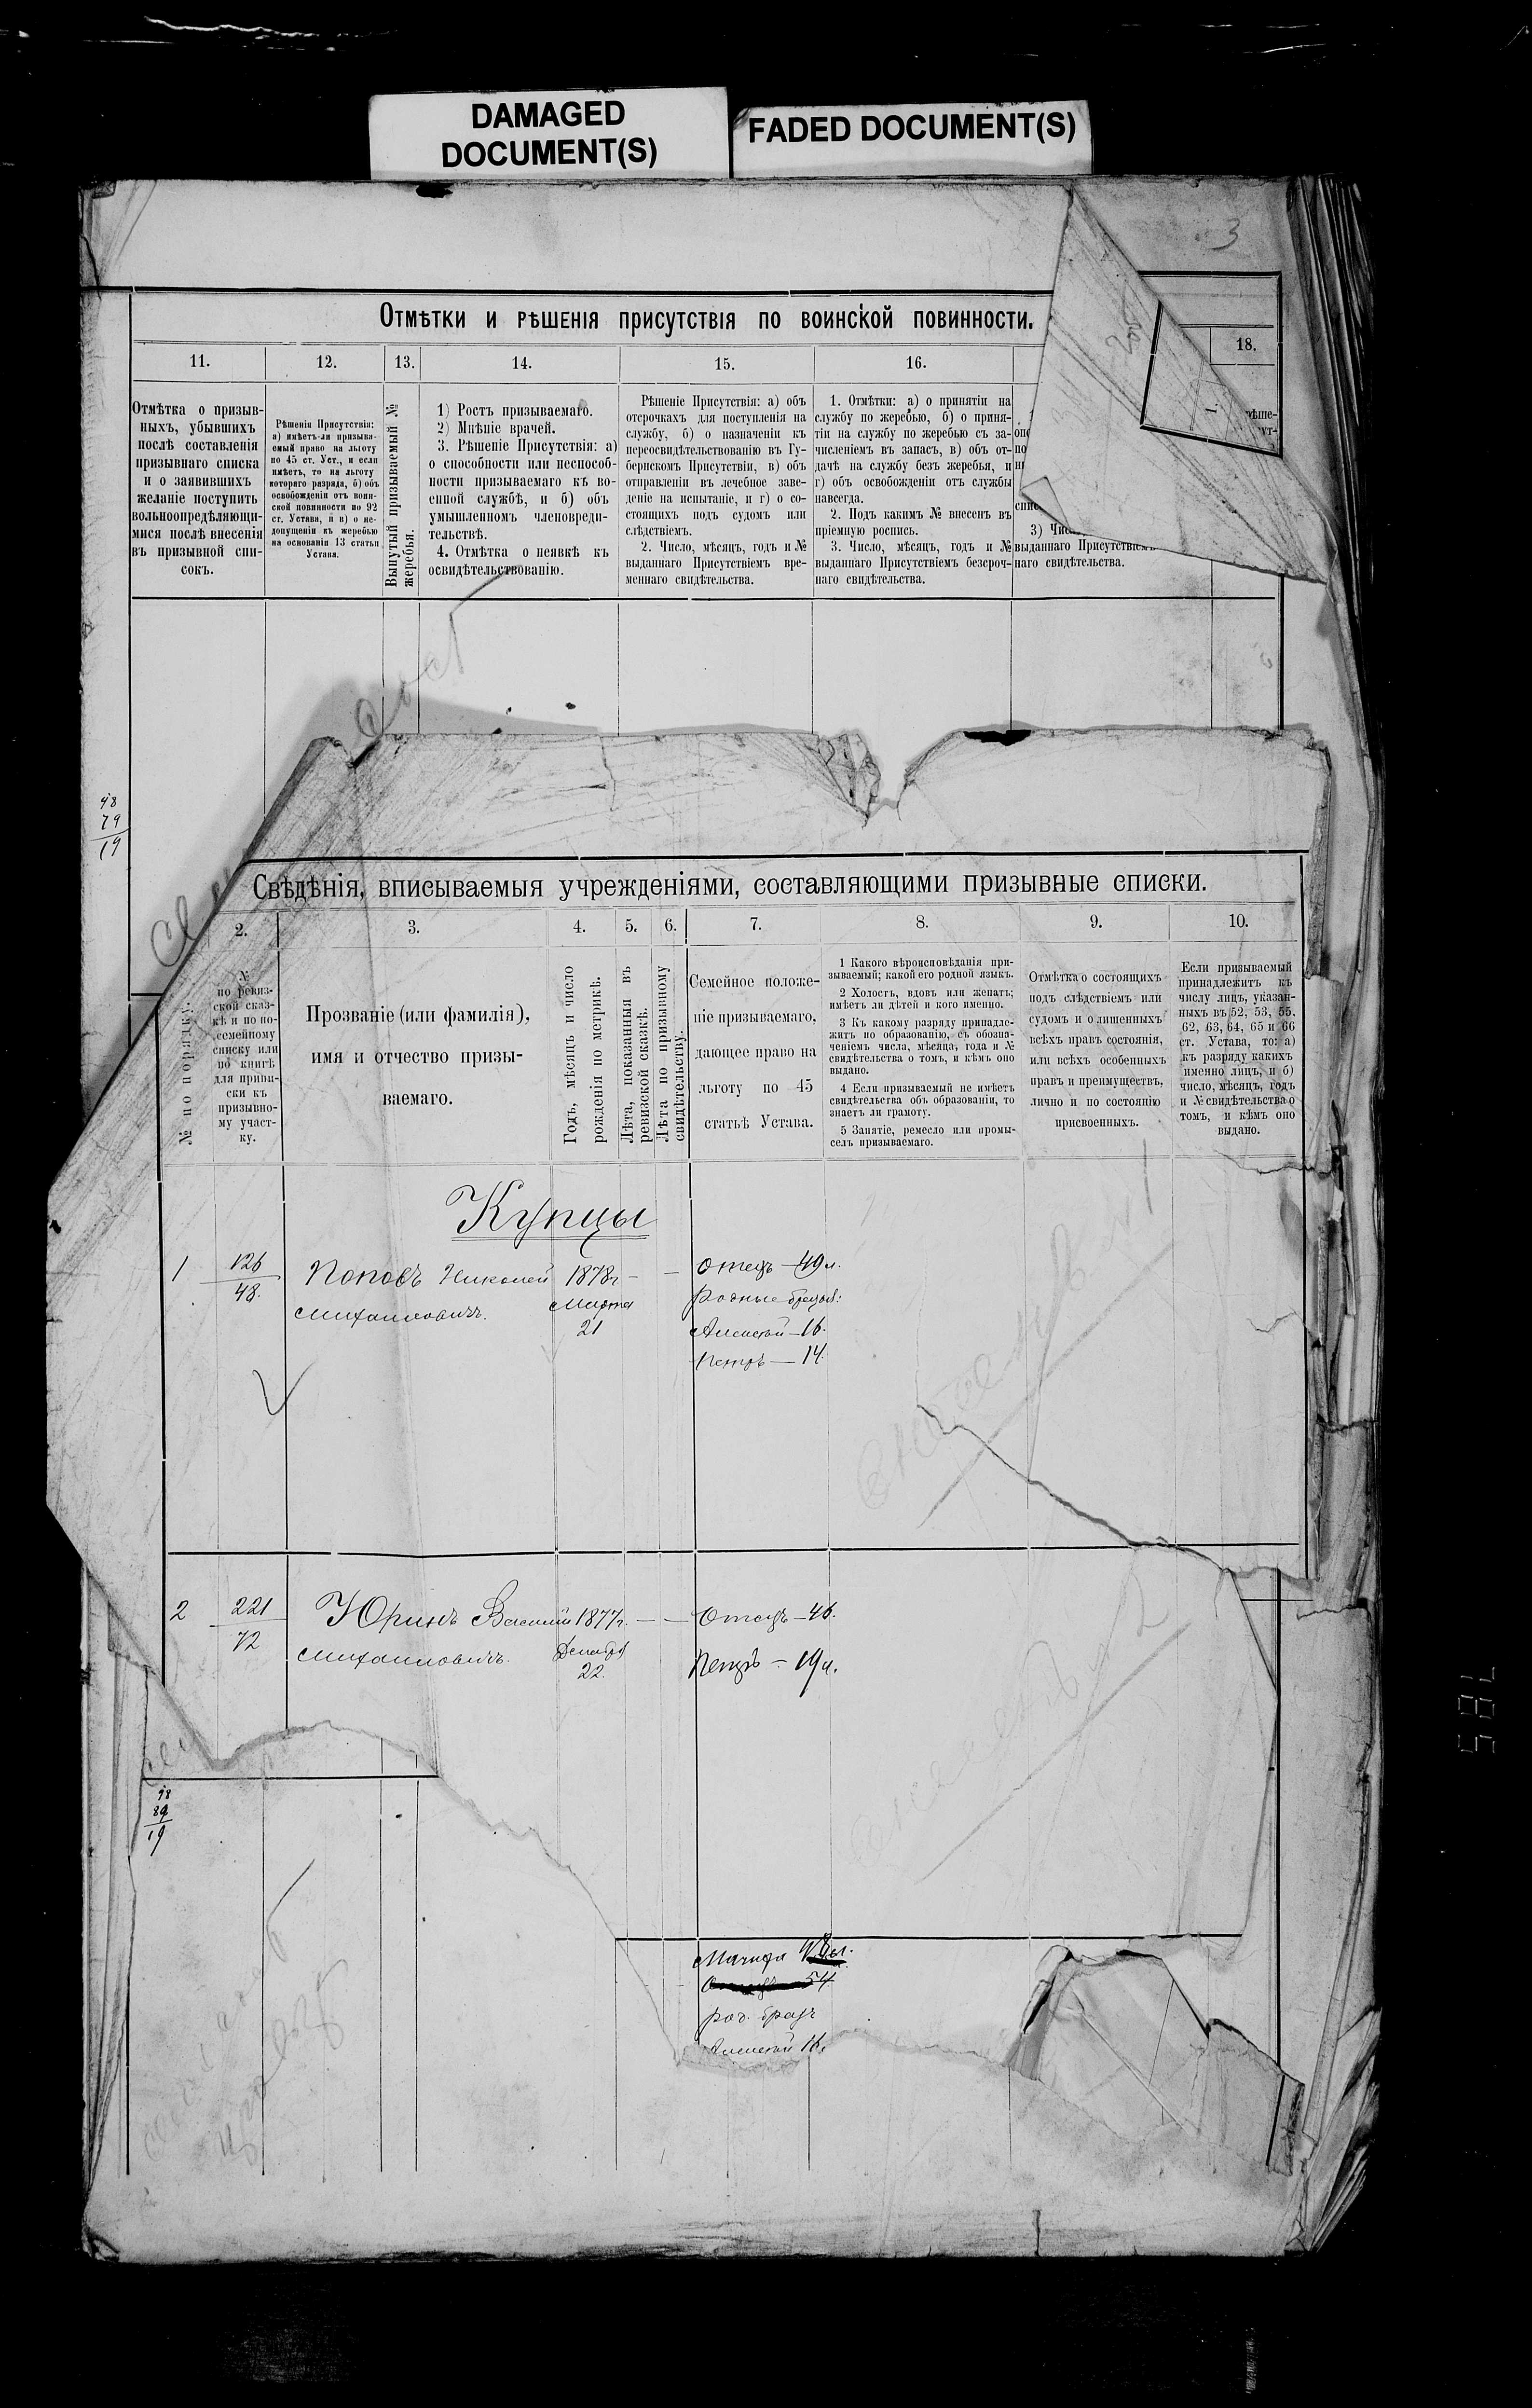 DAMAGED
DOCUMENT(S)
FADED DOCUMENT(S)
3
Отмѣтки и рѣшенія присутствія по воинской повинности.
11.
12.
13.
14.
15.
16.
18.
Отмѣтка о призыв-
ныхъ, убывшихъ
послѣ составленія
призывнаго списка
и о заявившихъ
желаніе поступить
вольноопредѣляющи-
мися послѣ внесенія
въ призывной спи-
сокъ.
Рѣшенія Присутствія:
а) имѣетъ-ли призыва-
емый право на льготу
по 45 ст. Уст., и если
имѣетъ, то на льготу
котораго разряда, б) объ
освобожденіи отъ воин-
ской повинности по 92
ст. Устава, и в) о не-
допущеніи къ жеребью
на основаніи 13 статьи
Устава.
Вынутый призываемый №
жеребья.
1) Ростъ призываемаго.
2) Мнѣніе врачей.
3. Рѣшеніе Присутствія: а)
о способности или неспособ-
ности призываемаго къ во-
енной службѣ, и б) объ
умышленномъ членовреди-
тельствѣ.
4. Отмѣтка о неявкѣ къ
освидѣтельствованію.
Рѣшеніе Присутствія: а) объ
отсрочкахъ для поступленія на
службу, б) о назначеніи къ
переосвидѣтельствованію въ Гу-
бернскомъ Присутствіи, в) объ
отправленіи въ лечебное заве-
деніе на испытаніе, и г) о со-
стоящихъ подъ судомъ или
слѣдствіемъ.
2. Число, мѣсяцъ, годъ и №
выданнаго Присутствіемъ вре-
меннаго свидѣтельства.
1. Отмѣтки: а) о принятіи на
службу по жеребью, б) о приня-
тіи на службу по жеребью съ за-
численіемъ въ запасъ, в) объ от-
дачѣ на службу безъ жеребья, и
г) объ освобожденіи отъ службы
навсегда.
2. Подъ какимъ № внесенъ въ
пріемную роспись.
3. Число, мѣсяцъ, годъ и №
выданнаго Присутствіемъ безсроч-
наго свидѣтельства.
3) Чис
выданнаго Присутствіемъ
наго свидѣтельства.
48
79
19
Свѣдѣнія, вписываемыя учрежденіями, составляющими призывные списки.
2.
3.
4.
5.
6.
7.
8.
9.
10.
№ по порядку.
№
по ревиз-
ской сказ-
кѣ и по по-
семейному
списку или
по книгѣ
для припи-
ски къ
призывно-
му участ-
ку.
Прозваніе (или фамилія),
имя и отчество призы-
ваемаго.
Годъ, мѣсяцъ и число
рожденія по метрикѣ.
Лѣта, показанныя въ
ревизской сказкѣ.
Лѣта по призывному
свидѣтельству.
Семейное положе-
ніе призываемаго,
дающее право на
льготу по 45
статьѣ Устава.
1 Какого вѣроисповѣданія при-
зываемый; какой его родной языкъ.
2 Холостъ, вдовъ или женатъ;
имѣетъ ли дѣтей и кого именно.
3 Къ какому разряду принадле-
житъ по образованію, съ обозна-
ченіемъ числа, мѣсяца, года и №
свидѣтельства о томъ, и кѣмъ оно
выдано.
4 Если призываемый не имѣетъ
свидѣтельства объ образованіи, то
знаетъ ли грамоту.
5 Занятіе, ремесло или промы-
селъ призываемаго.
Отмѣтка о состоящихъ
подъ слѣдствіемъ или
судомъ и о лишенныхъ
всѣхъ правъ состоянія,
или всѣхъ особенныхъ
правъ и преимуществъ,
лично и по состоянію
присвоенныхъ.
Если призываемый
принадлежитъ къ
числу лицъ, указан-
ныхъ въ 52, 53, 55,
62, 63, 64, 65 и 66
ст. Устава, то: а)
къ разряду какихъ
именно лицъ, и б)
число, мѣсяцъ, годъ
и № свидѣтельства о
томъ, и кѣмъ оно
выдано.
Купцы
1
126
48.
Поповъ Николай
Михаиловичъ.
1878г
Марта
21
Отецъ — 49 л.
Родные братья:
Алексѣй — 16.
Петръ — 14.
2
221
72
Юринъ Василій
Михаиловичъ.
1877г.
Декабря
22.
Отецъ — 46.
Петръ — 19 л.
48
89
19
Мачиха
54
род. братъ
Алексѣй 16.
785